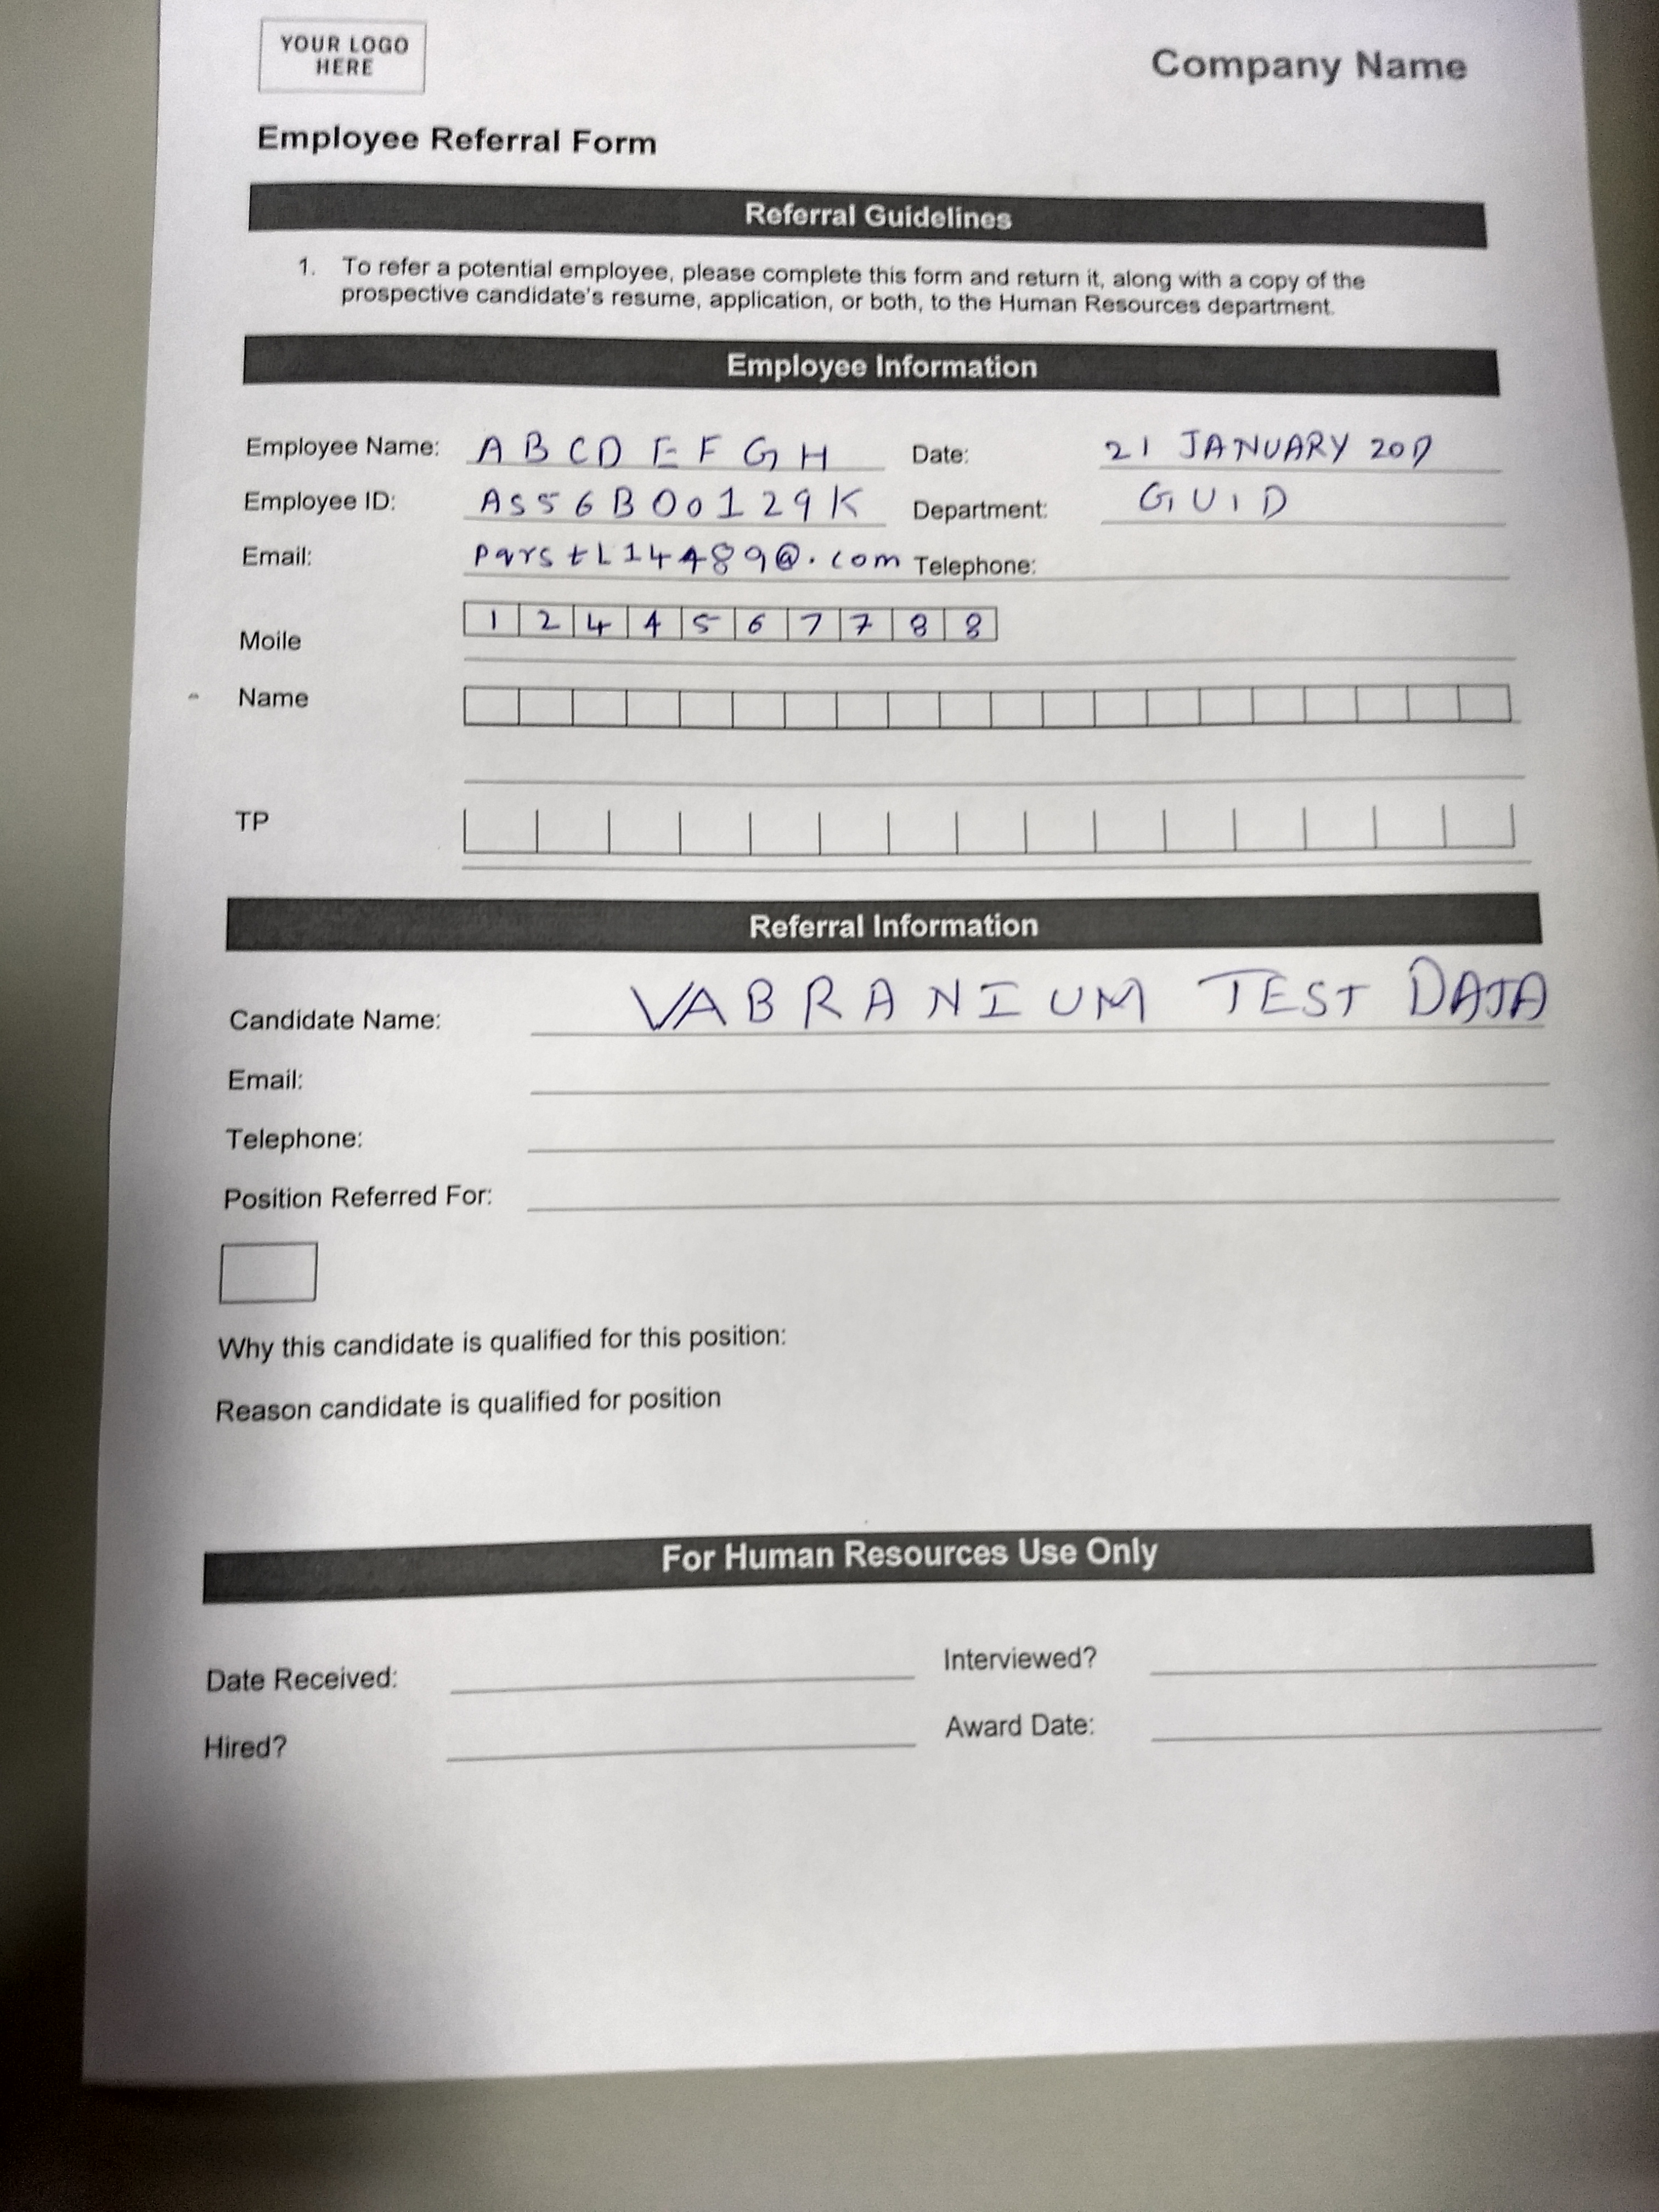 YOUR LOGO
HERE
Company Name
Employee Referral Form
Referral Guidelines
1. To refer a potential employee, please complete this form and return it, along with a copy of the
prospective candidate's resume, application, or both, to the Human Resources department.
Employee Information
Employee Name: A B C D E F G H Date: 21 JANUARY
Employee ID: AS56B00129K Department: GUID
Email: Telephone:
Moile 1 2 4 4 5 6 7 7 8 8
Name
TP
Referral Information
Candidate Name: VABRANIUM TEST DATA
Email:
Telephone:
Position Referred For:
Why this candidate is qualified for this position:
Reason candidate is qualified for position
For Human Resources Use Only
Date Received: Interviewed?
Hired? Award Date: